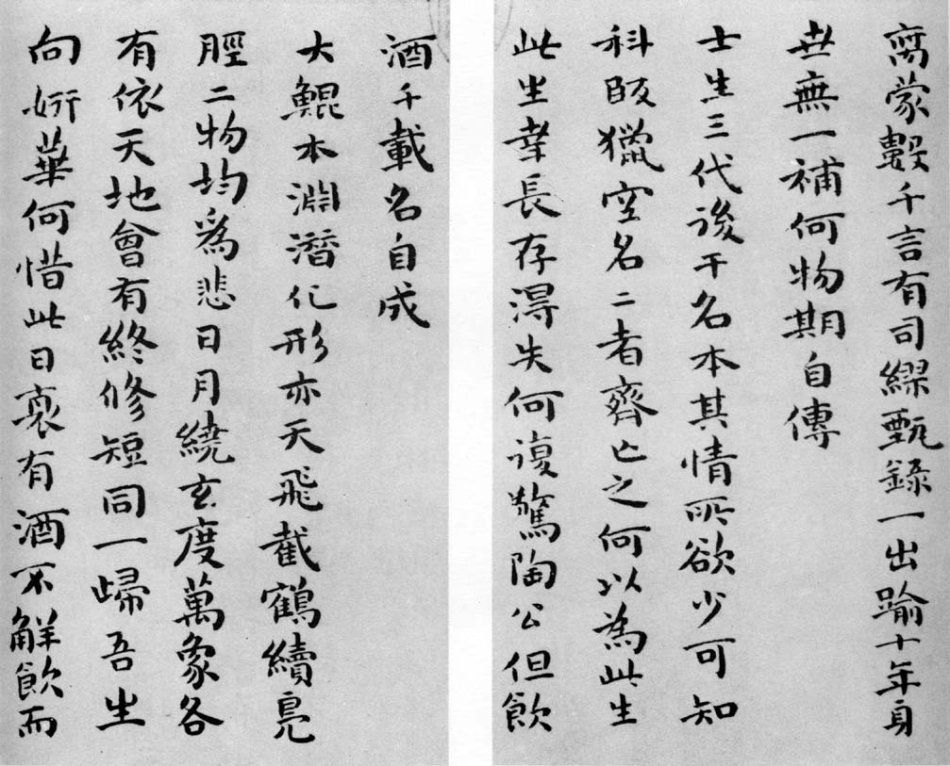 蒙數千言有司繆甄錄一出踰十年身
世無一補何物期自傳
士生三代後干名本其情所欲少可知
科段獵空名二者齊亡之何以為此生
此生幸長存淂失何復驚陶公但飲
酒千載名自成
大鯤本淵潛化形亦天飛截鶴續鳧
脛二物均爲悲日月繞玄度萬象各
有依天地會有終修短同一歸吾生
向妍華何惜此日衰有酒不解飲而